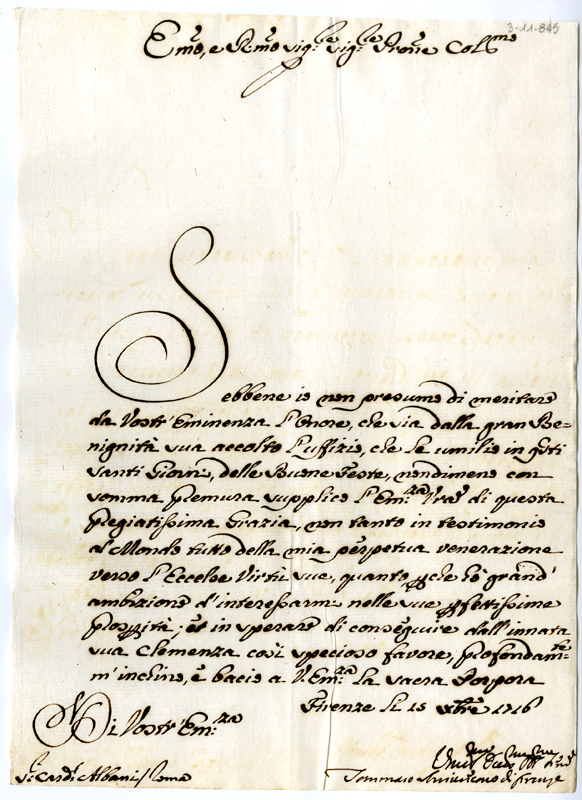 3-11-845
Emo, e Rmo Sig.re Sig.re Prone Colmo
Sebbene io non presumo di meritare
da Vostr'Eminenza l'Onore, che sia dalla gran Be=
nignità sua accolto l'uffizio, che le umilio in qsti
Santi Giorni, delle Buone Feste, nondimeno con
somma premura supplico l'Em.za Vra di questa
pregiatissima Grazia, non tanto in testimonio
al Mondo tutto della mia perpetua venerazione
verso l'Eccelse Virtù sue, quanto pche hò grand'
ambizione d'interessarmi nelle sue pfettissime
prospità; et in sperare di conseguire dall'innata
sua Clemenza così specioso favore, profondam.te
m'inchino, e bacio a V.Em.za la sacra Porpora
Firenze li 15 xbre 1716
Di Vostr'Em.za
S.r Card. Albani / Roma
Tommaso di Firenze